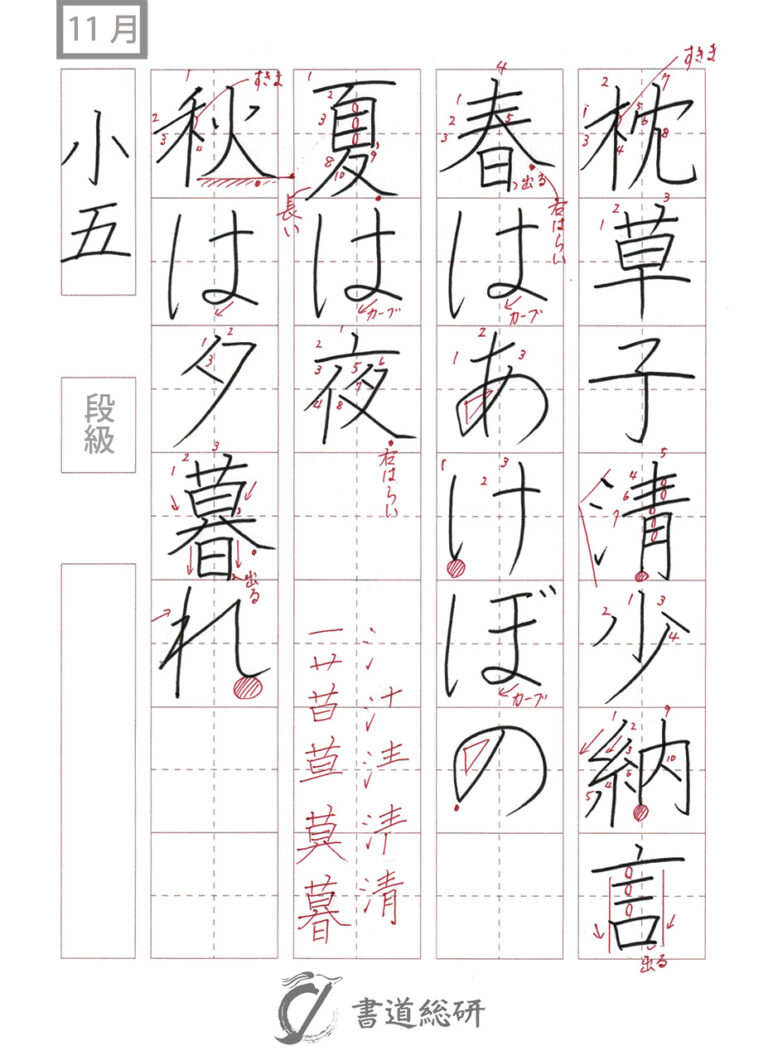 11月
枕草子清少納言
すきま
出る
春はあけぼの
出る
右はらい
カーブ
カーブ
夏は夜
長い
カーブ
右はらい
氵汁浐清清
一艹苔莒莫暮
秋は夕暮れ
すきま
出る
小五
段級
書道総研